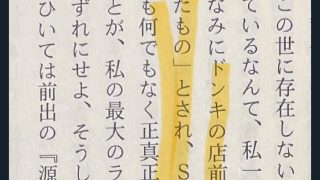 この世に存在しない
ているなんて、私一
なみにドンキの店前
たもの」とされ、S
も何でもなく正真正
とが、私の最大のラ
ずれにせよ、そうし
ひいては前出の『源